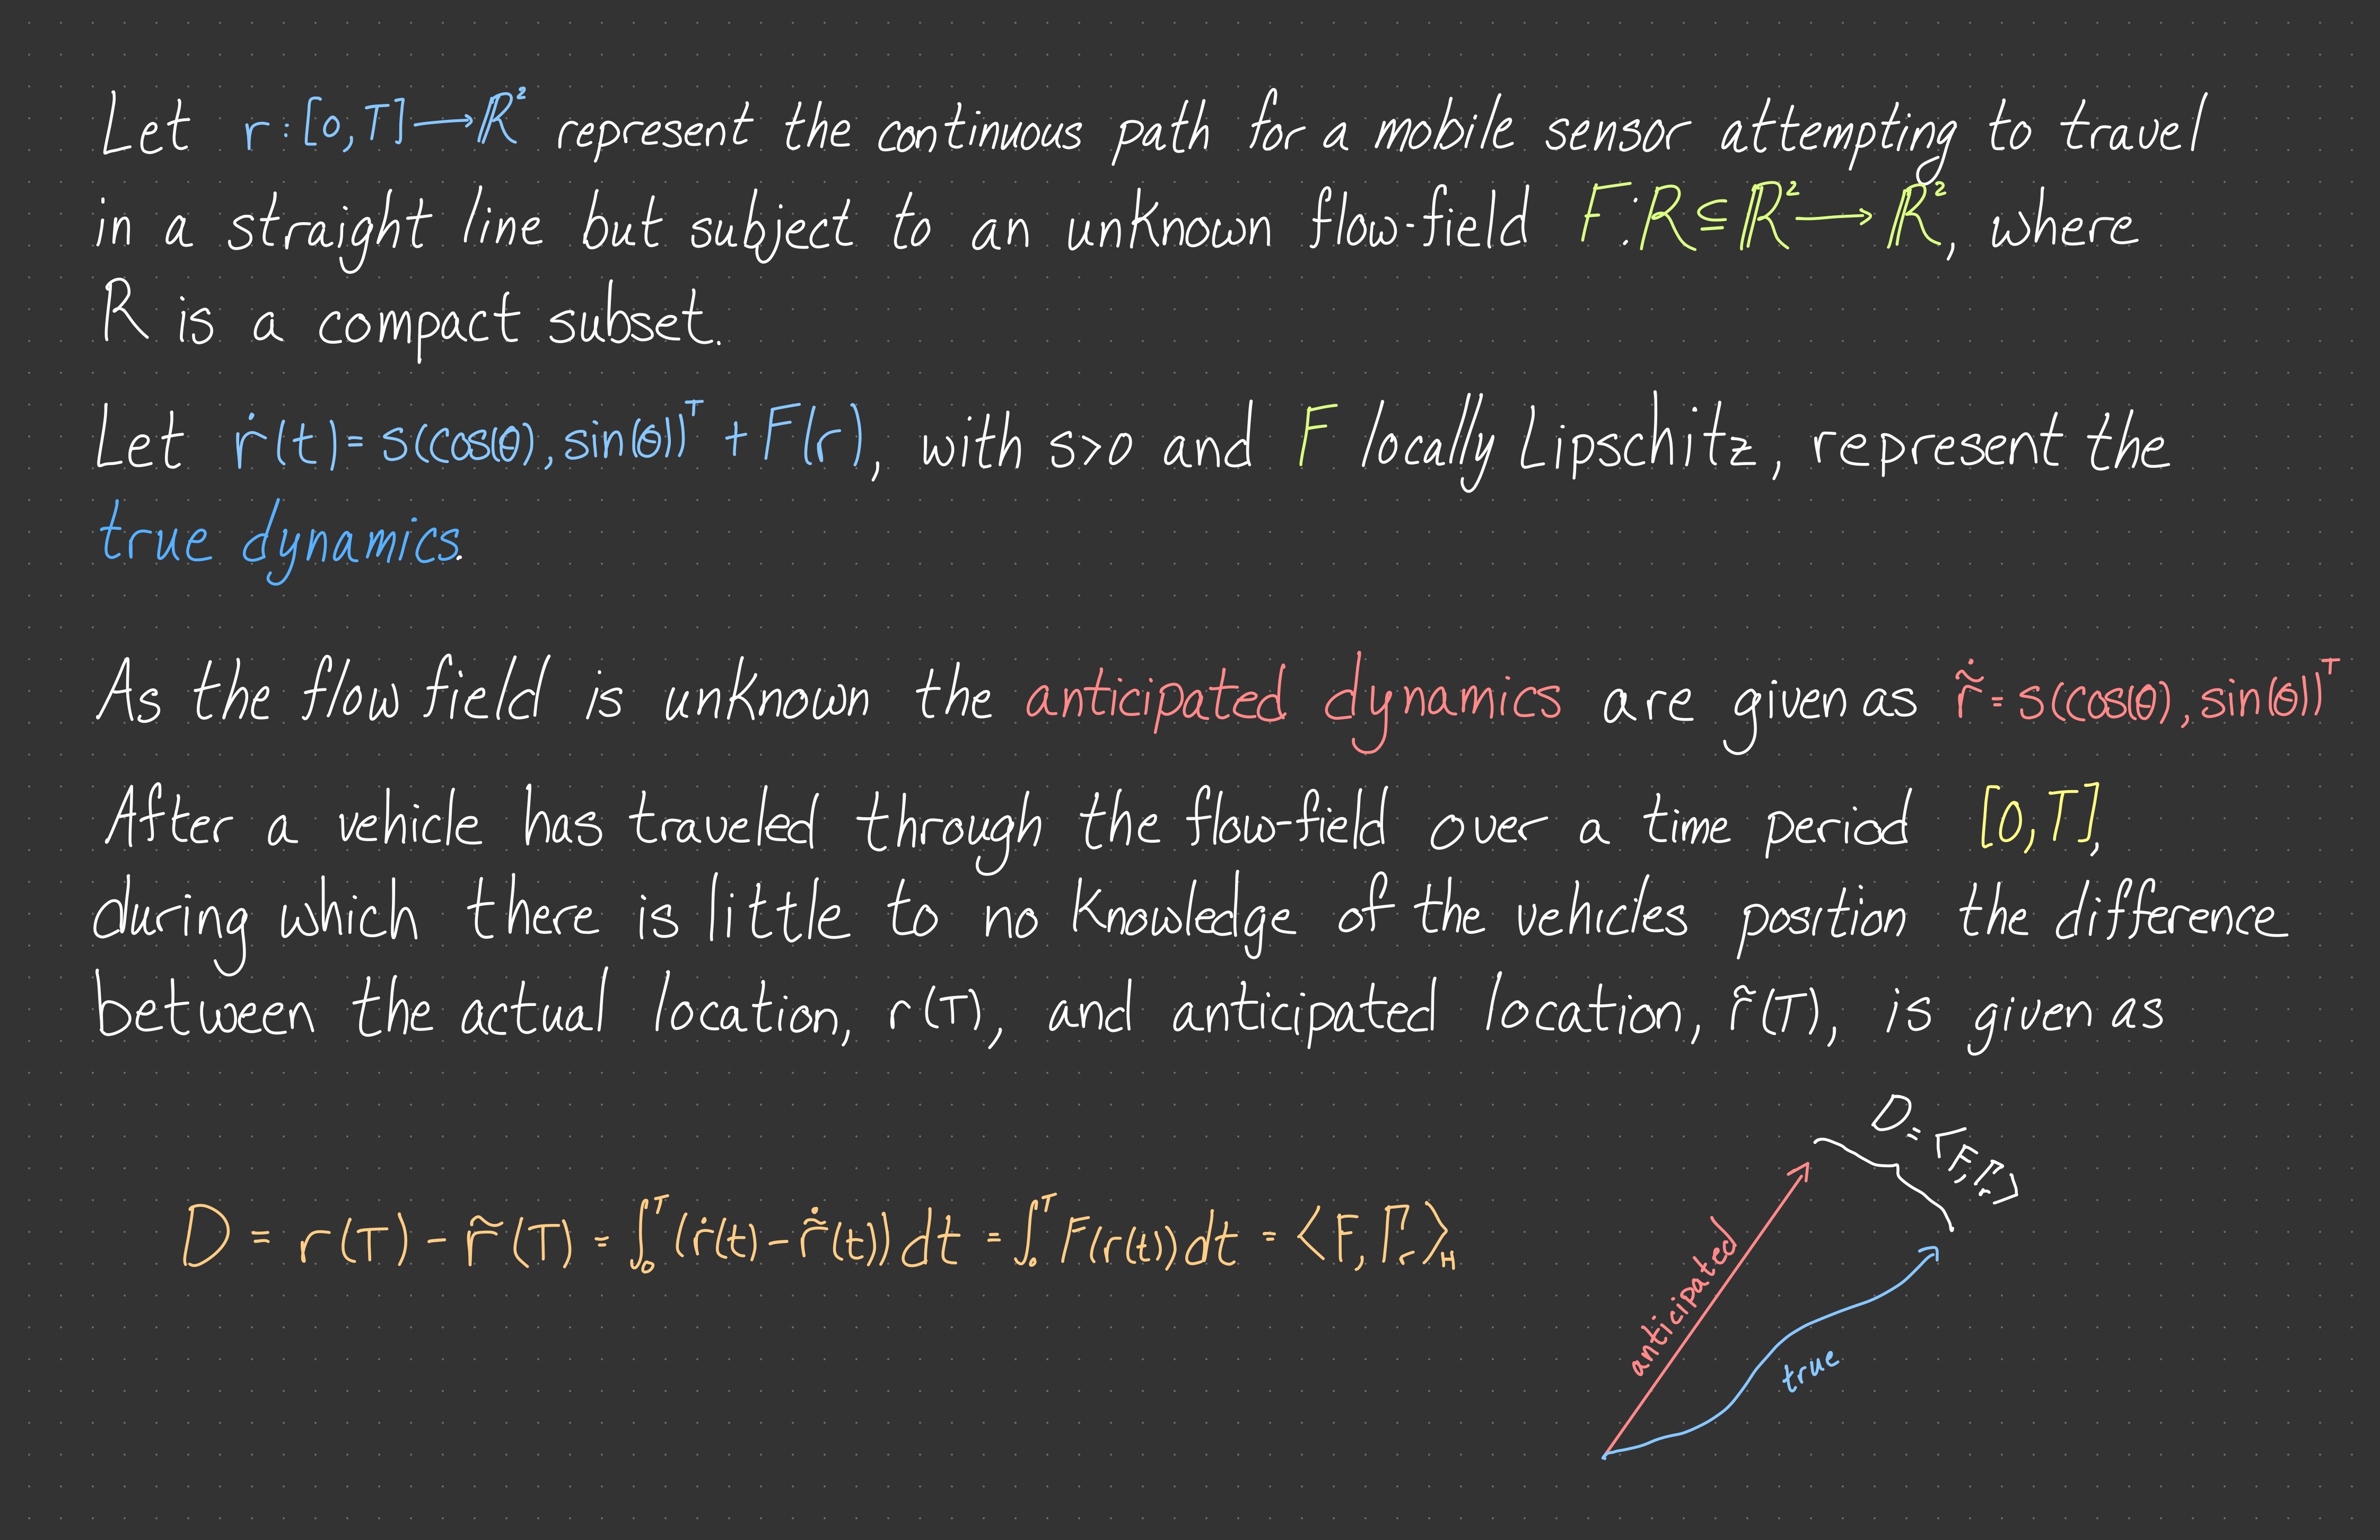 Let r:[0,T]→ℝ² represent the continuous path for a mobile sensor attempting to travel
in a straight line but subject to an unknown flow-field F:R⊆ℝ²→ℝ², where
R is a compact subset.
Let ṙ(t)=s(cos(θ),sin(θ))ᵀ+F(r), with s>0 and F locally Lipschitz, represent the
true dynamics.
As the flow field is unknown the anticipated dynamics are given as r̃̇=s(cos(θ),sin(θ))ᵀ
After a vehicle has traveled through the flow-field over a time period [0,T],
during which there is little to no knowledge of the vehicles position the difference
between the actual location, r(T), and anticipated location, r̃(T), is given as
D = r(T) - r̃(T) = ∫₀ᵀ(ṙ(t)-r̃̇(t))dt = ∫₀ᵀF(r(t))dt = <F,Γᵣ>_H
D=<F,Γᵣ>
anticipated
true